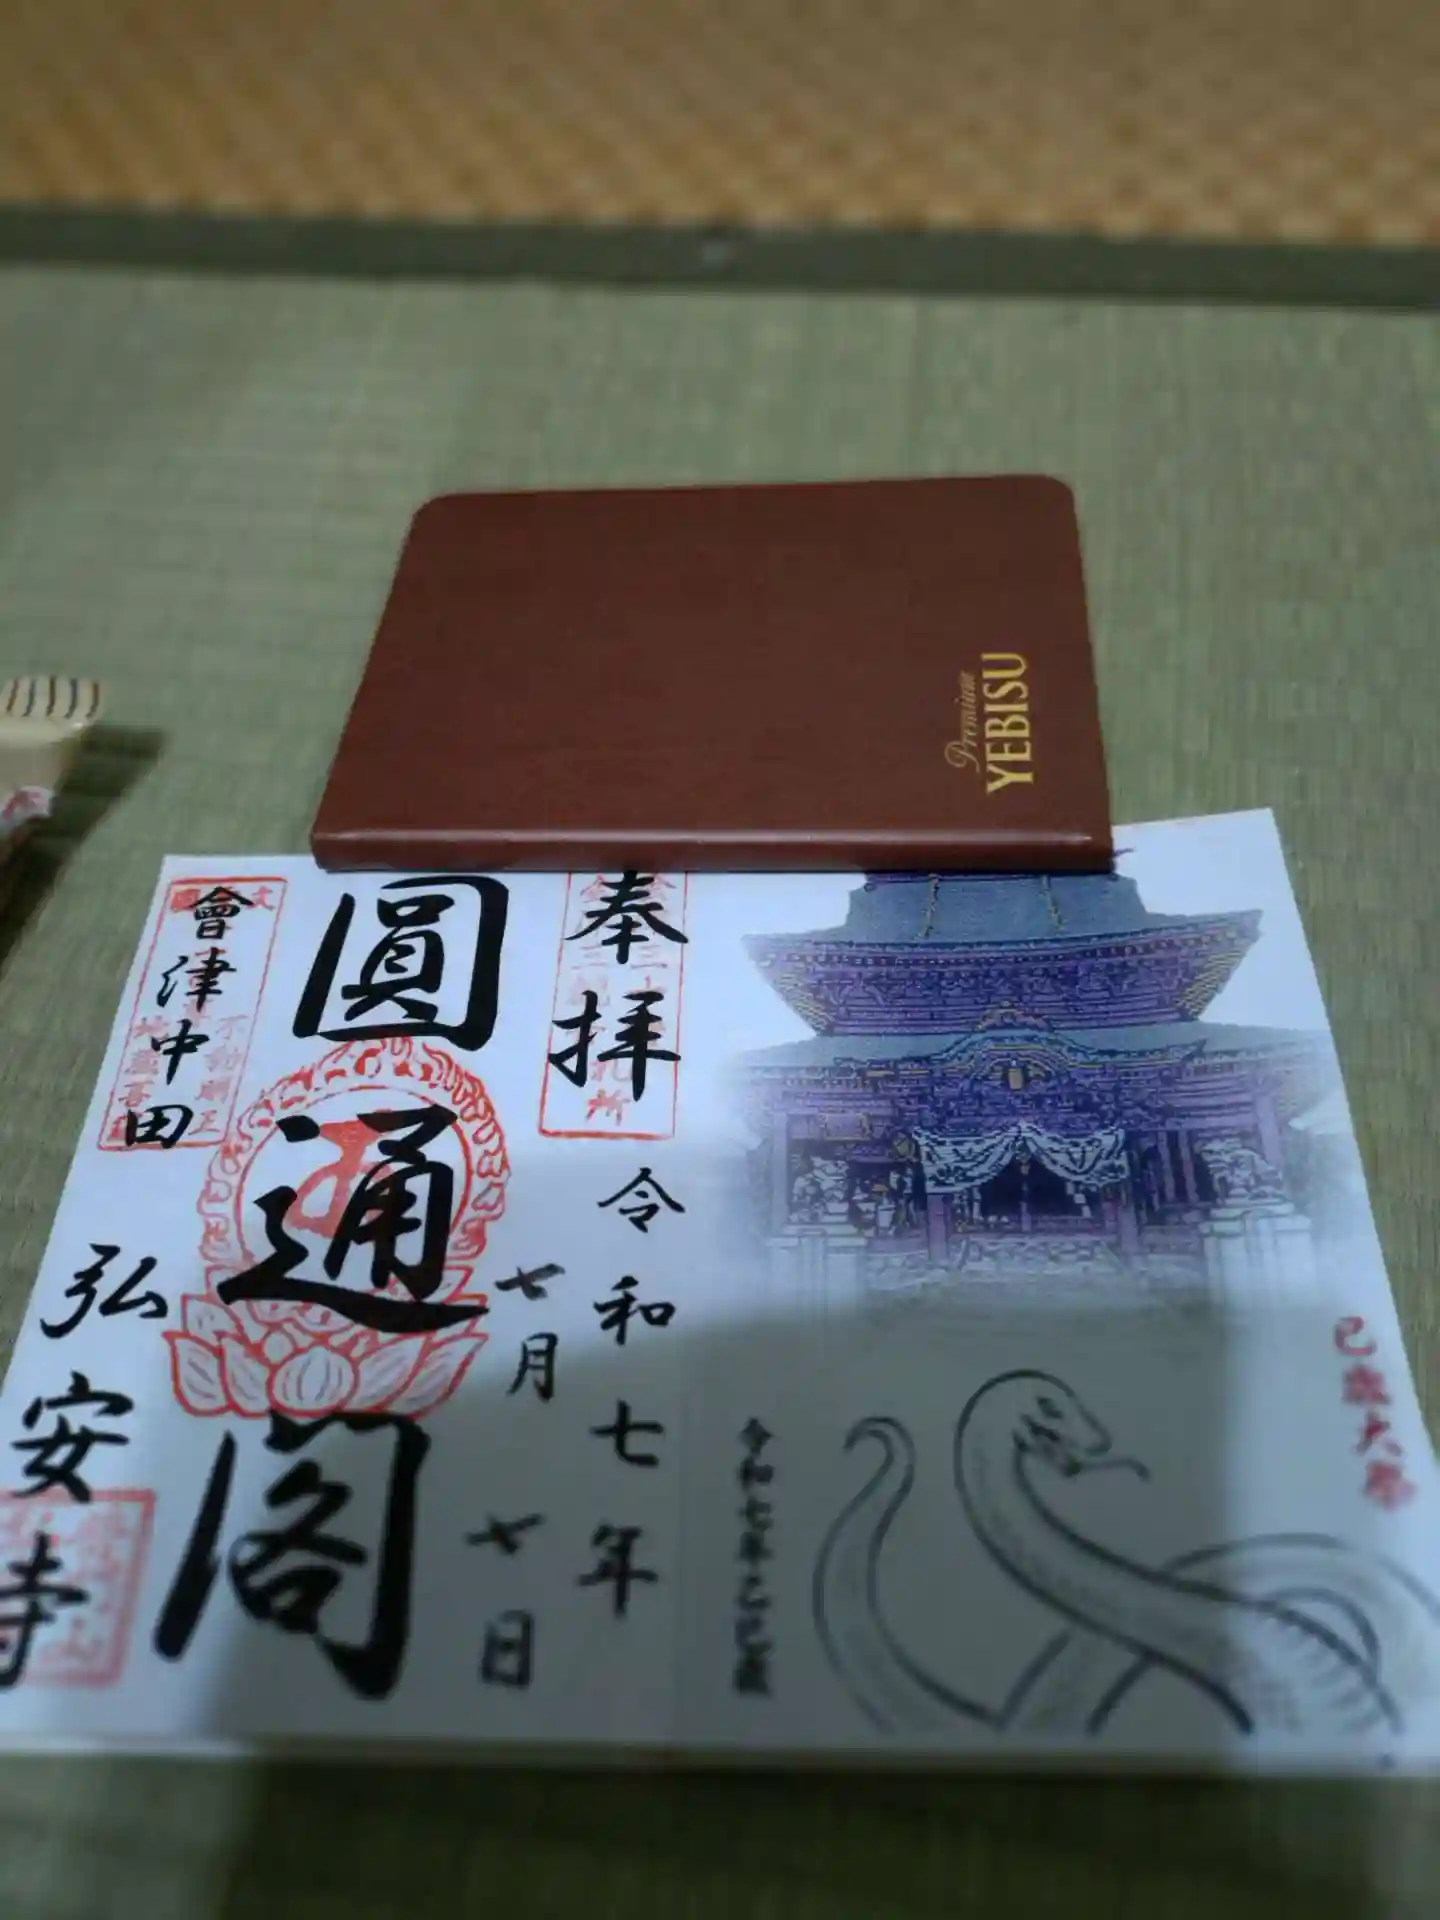 Premium
YEBISU
奉拝
令和七年
七月七日
圓通閣
會津中田
弘安寺
令和七年乙巳歳